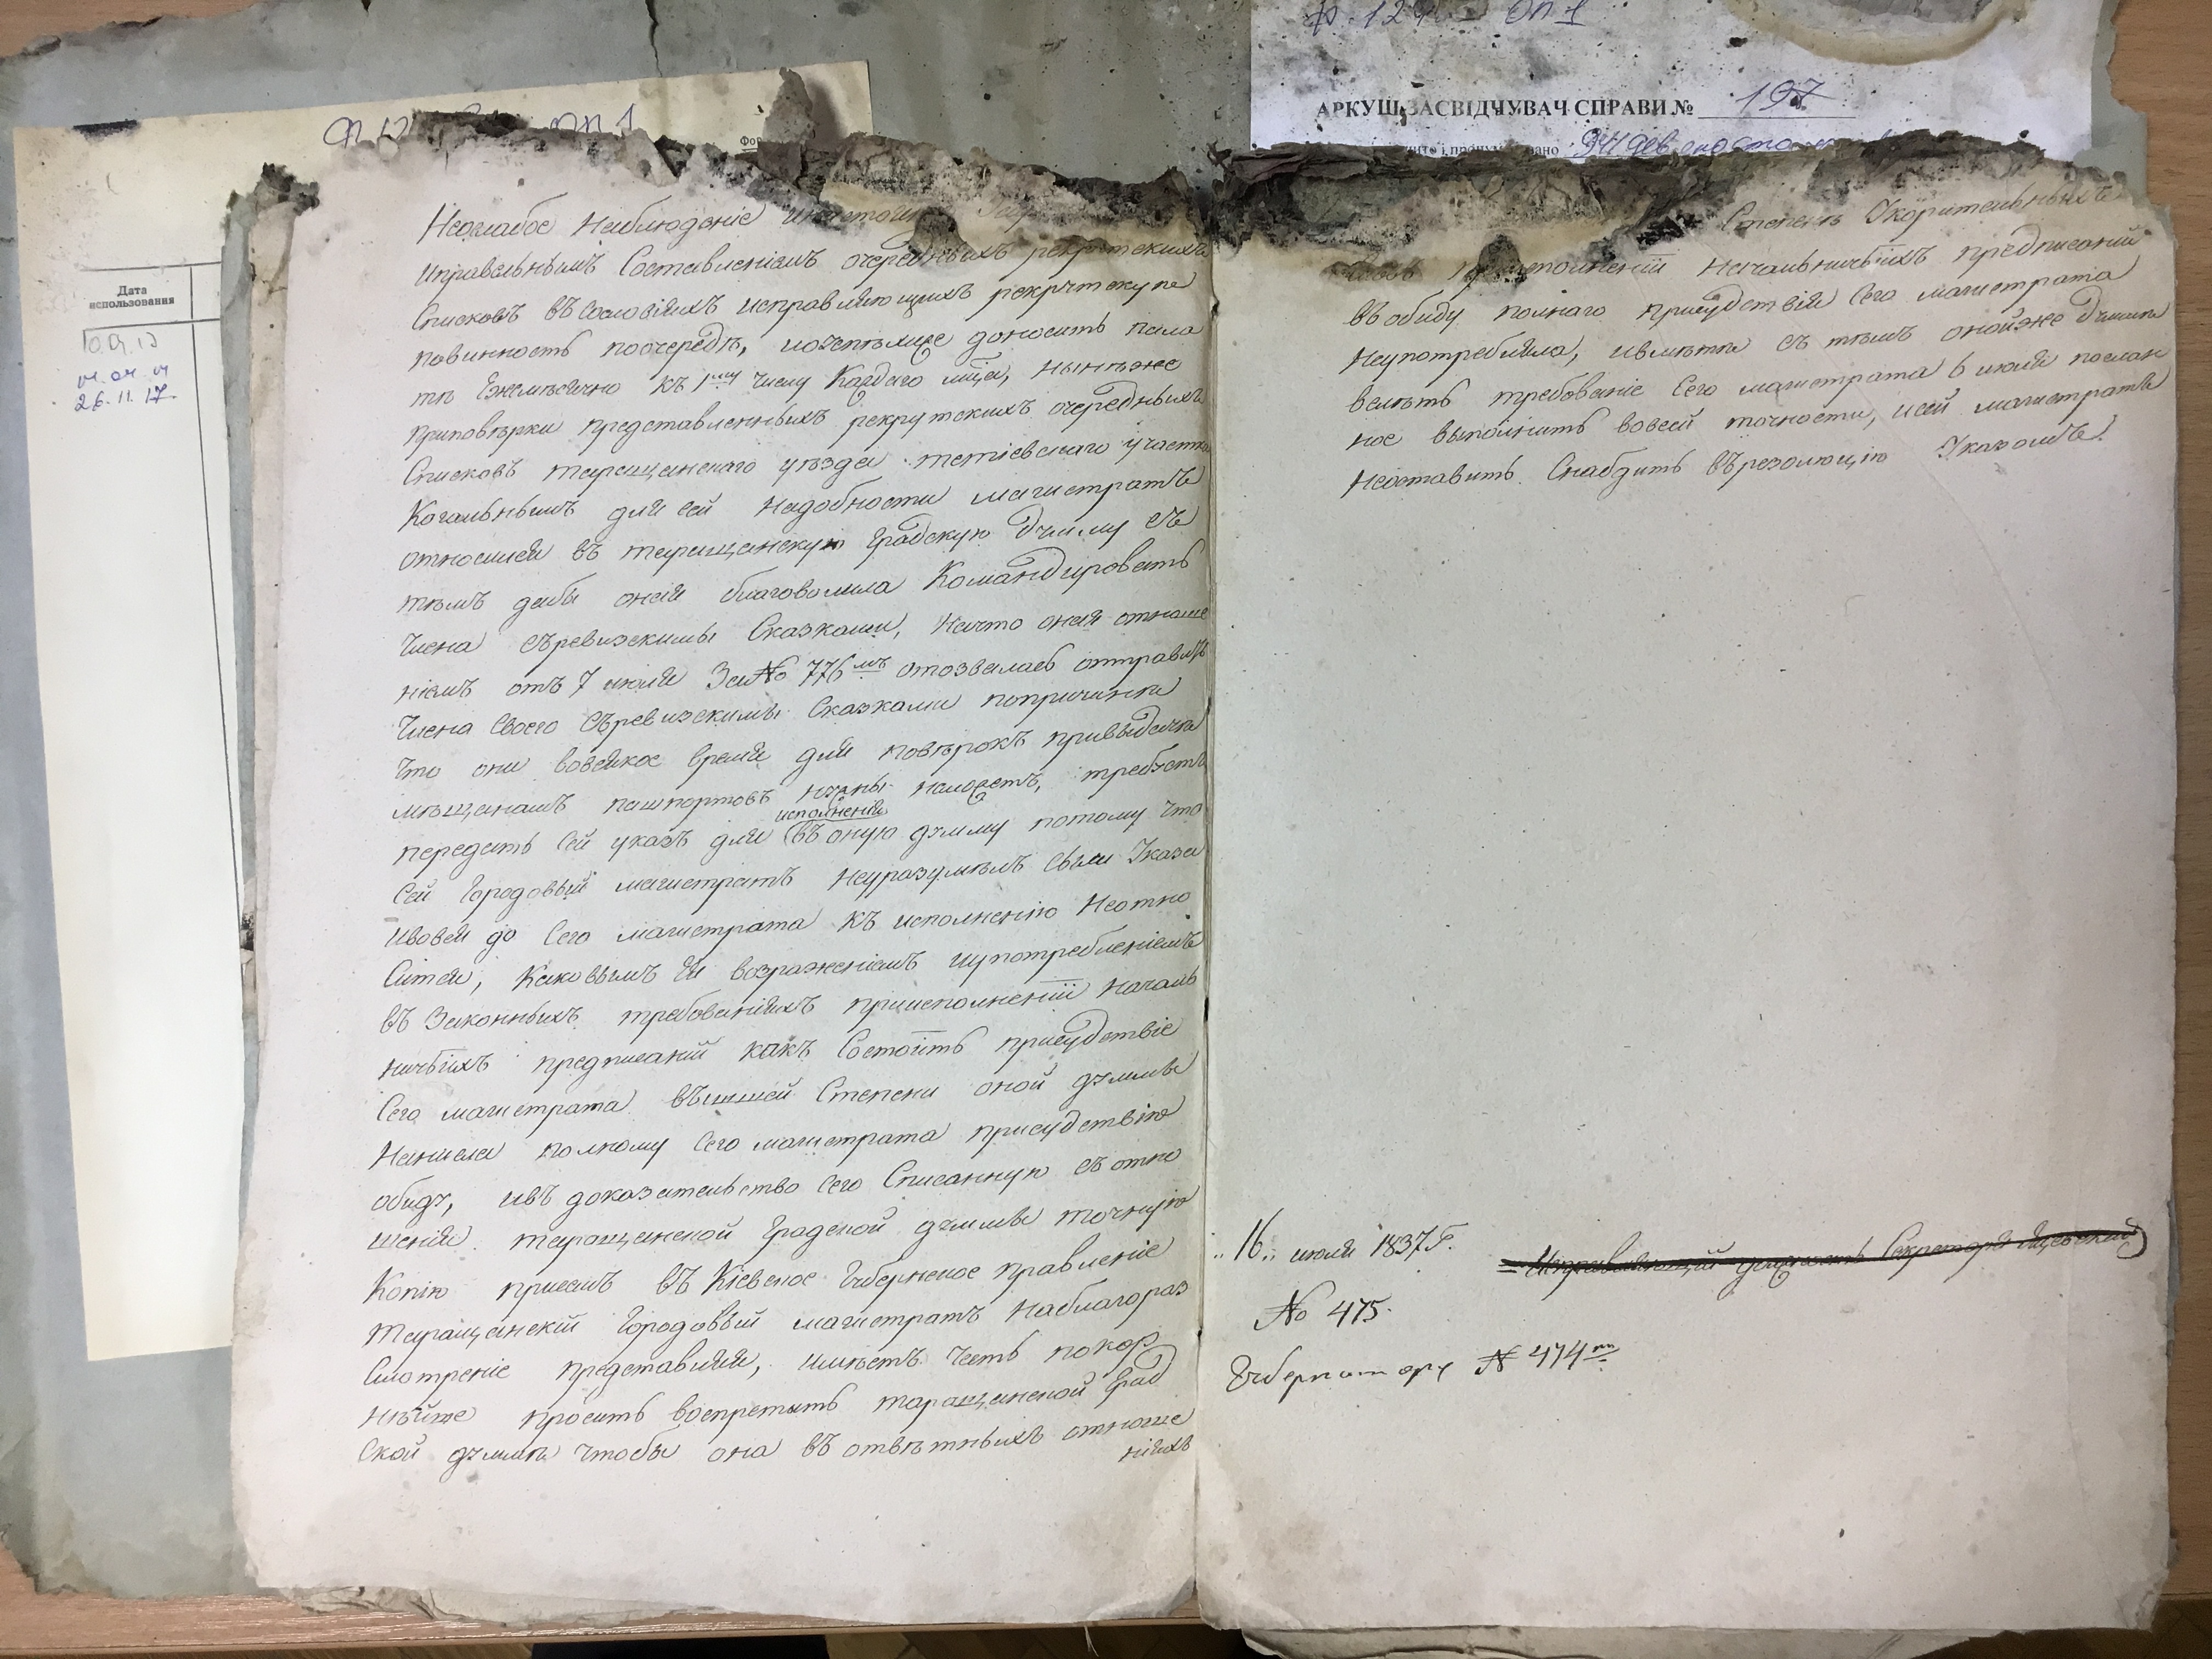 АРКУШ-ЗАСВІДЧУВАЧ СПРАВИ № 197
Дата
использования
26.11.17.
Неослабое Наблюденіе
иправельнымъ Составленіемъ очередныхъ рекрутскихъ
Списковъ въ Сословіяхъ исправляющихъ рекрутскую
повинность поочередъ, доносить пала
тѣ Ежемѣсячно къ 1му числу Каждаго мца, нынѣже
приповѣрки представленныхъ рекрутскихъ очередныхъ
Списковъ таращанскаго уѣзда тетіевскаго участка
Когальнымъ для сей Надобности магистратъ
относился въ таращанскую Градскую Думу съ
тѣмъ дабы оная благоволила Командировать
Члена Съревизскимы Сказками, Начто оная отноше
ніемъ отъ 7 июля За № 776мъ отозвалась отправить
Члена Своего Съревизскимы Сказками попричинѣ
Что они вовсякое время для повѣрокъ привыдачѣ
мѣщанамъ пашпортовъ нужны, требуетъ
исполненія
передать Сей указъ для въ оную думу потому что
Сей Городовый магистратъ Неуразумѣлъ Силы Указа
ивовся до Сего магистрата къ исполненію Неотно
Сится, Каковымъ Ея возраженіемъ иупотребленіемъ
въ Законныхъ требованіяхъ приисполненіи началь
ничьихъ предписаній какъ Состоитъ присудствіе
Сего магистрата въышшей Степени оной думы
Нанесла полному Сего магистрата присудствію
обиду, ивъ доказательство Сего Списанную съ отно
шенія таращанской Градской думы точную
Копію присемъ въ Кіевское Губернское правленіе
Таращанскій Городовый магистратъ Наблагораз
Смотреніе представляя, имѣетъ Честь покор
нѣйше просить воспретить таращанской Град
ской думѣ чтобы она въ отвѣтныхъ отноше
ніяхъ
Степень Укорительныхъ
приисполненіи Начальничьихъ предписаній
въ обиду полнаго присудствія Сего магистрата
Неупотребляла, ивмѣстѣ съ тѣмъ онойже Думѣ
велѣть требованіе Сего магистрата 6 июля послан
ное выполнить вовсей точности, исей магистратъ
Неоставить Снабдить въ резолюцію Указомъ.
„16„ июля 1837 Г.
Исправляющій должность Секретаря
No 475.
Губернатору № 474мъ